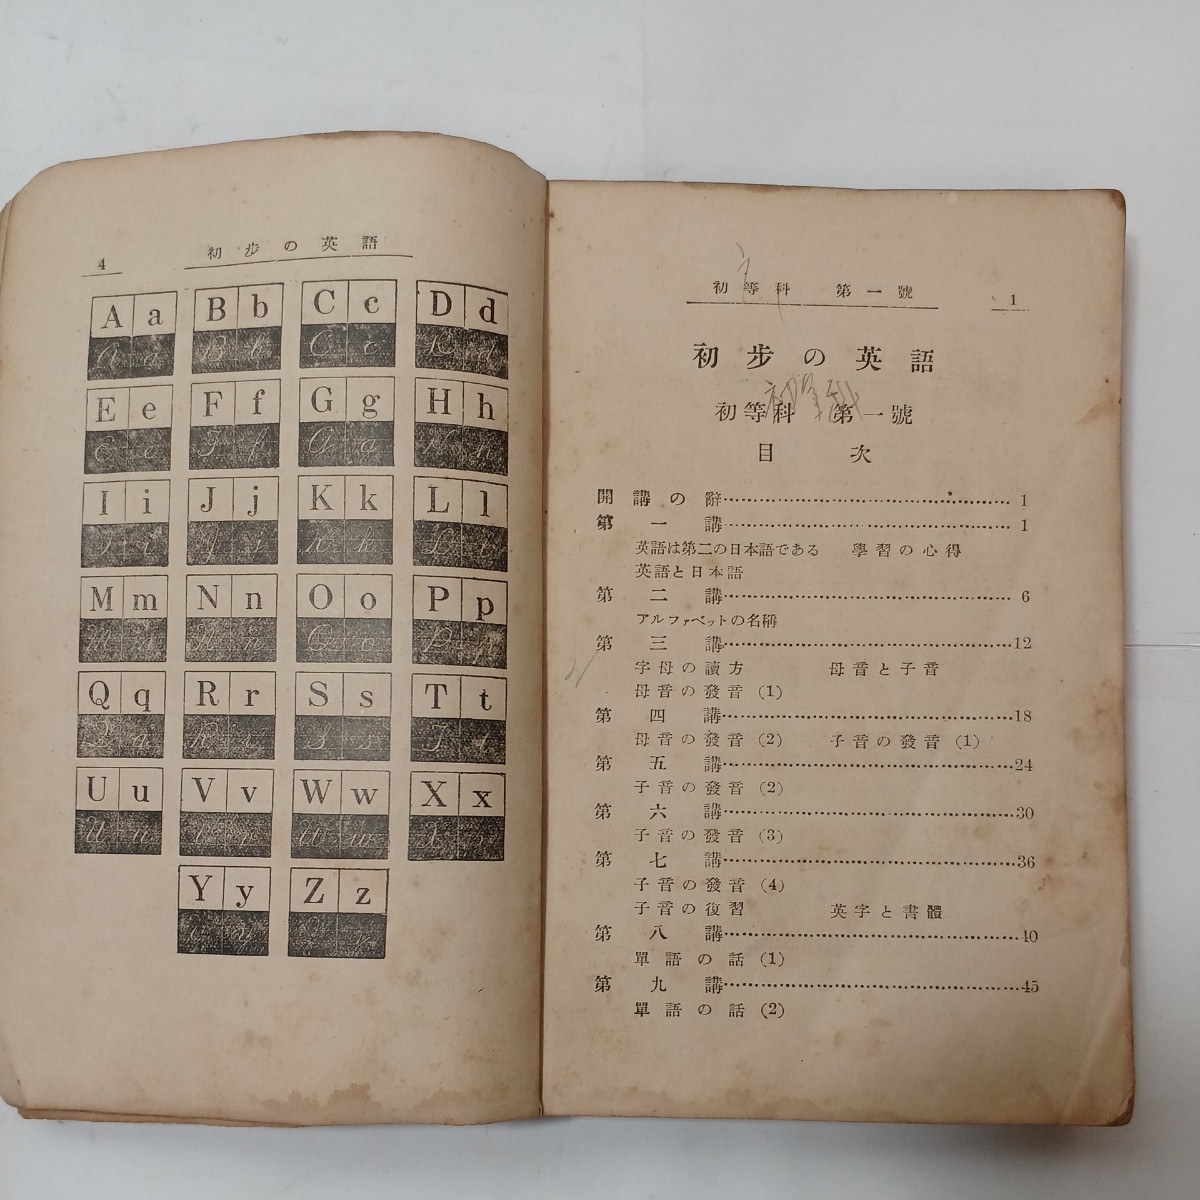 4 初步の英語
A a B b C c D d
E e F f G g H h
I i J j K k L l
M m N n O o P p
Q q R r S s T t
U u V v W w X x
Y y Z z
初等科 第一號 1
初步の英語
初等科 第一號
目次
開講の辭 1
第一講 1
英語は第二の日本語である 學習の心得
英語と日本語
第二講 6
アルファベットの名稱
第三講 12
字母の讀方 母音と子音
母音の發音 (1)
第四講 18
母音の發音 (2) 子音の發音 (1)
第五講 24
子音の發音 (2)
第六講 30
子音の發音 (3)
第七講 36
子音の發音 (4)
子音の復習 英字と書體
第八講 40
單語の話 (1)
第九講 45
單語の話 (2)